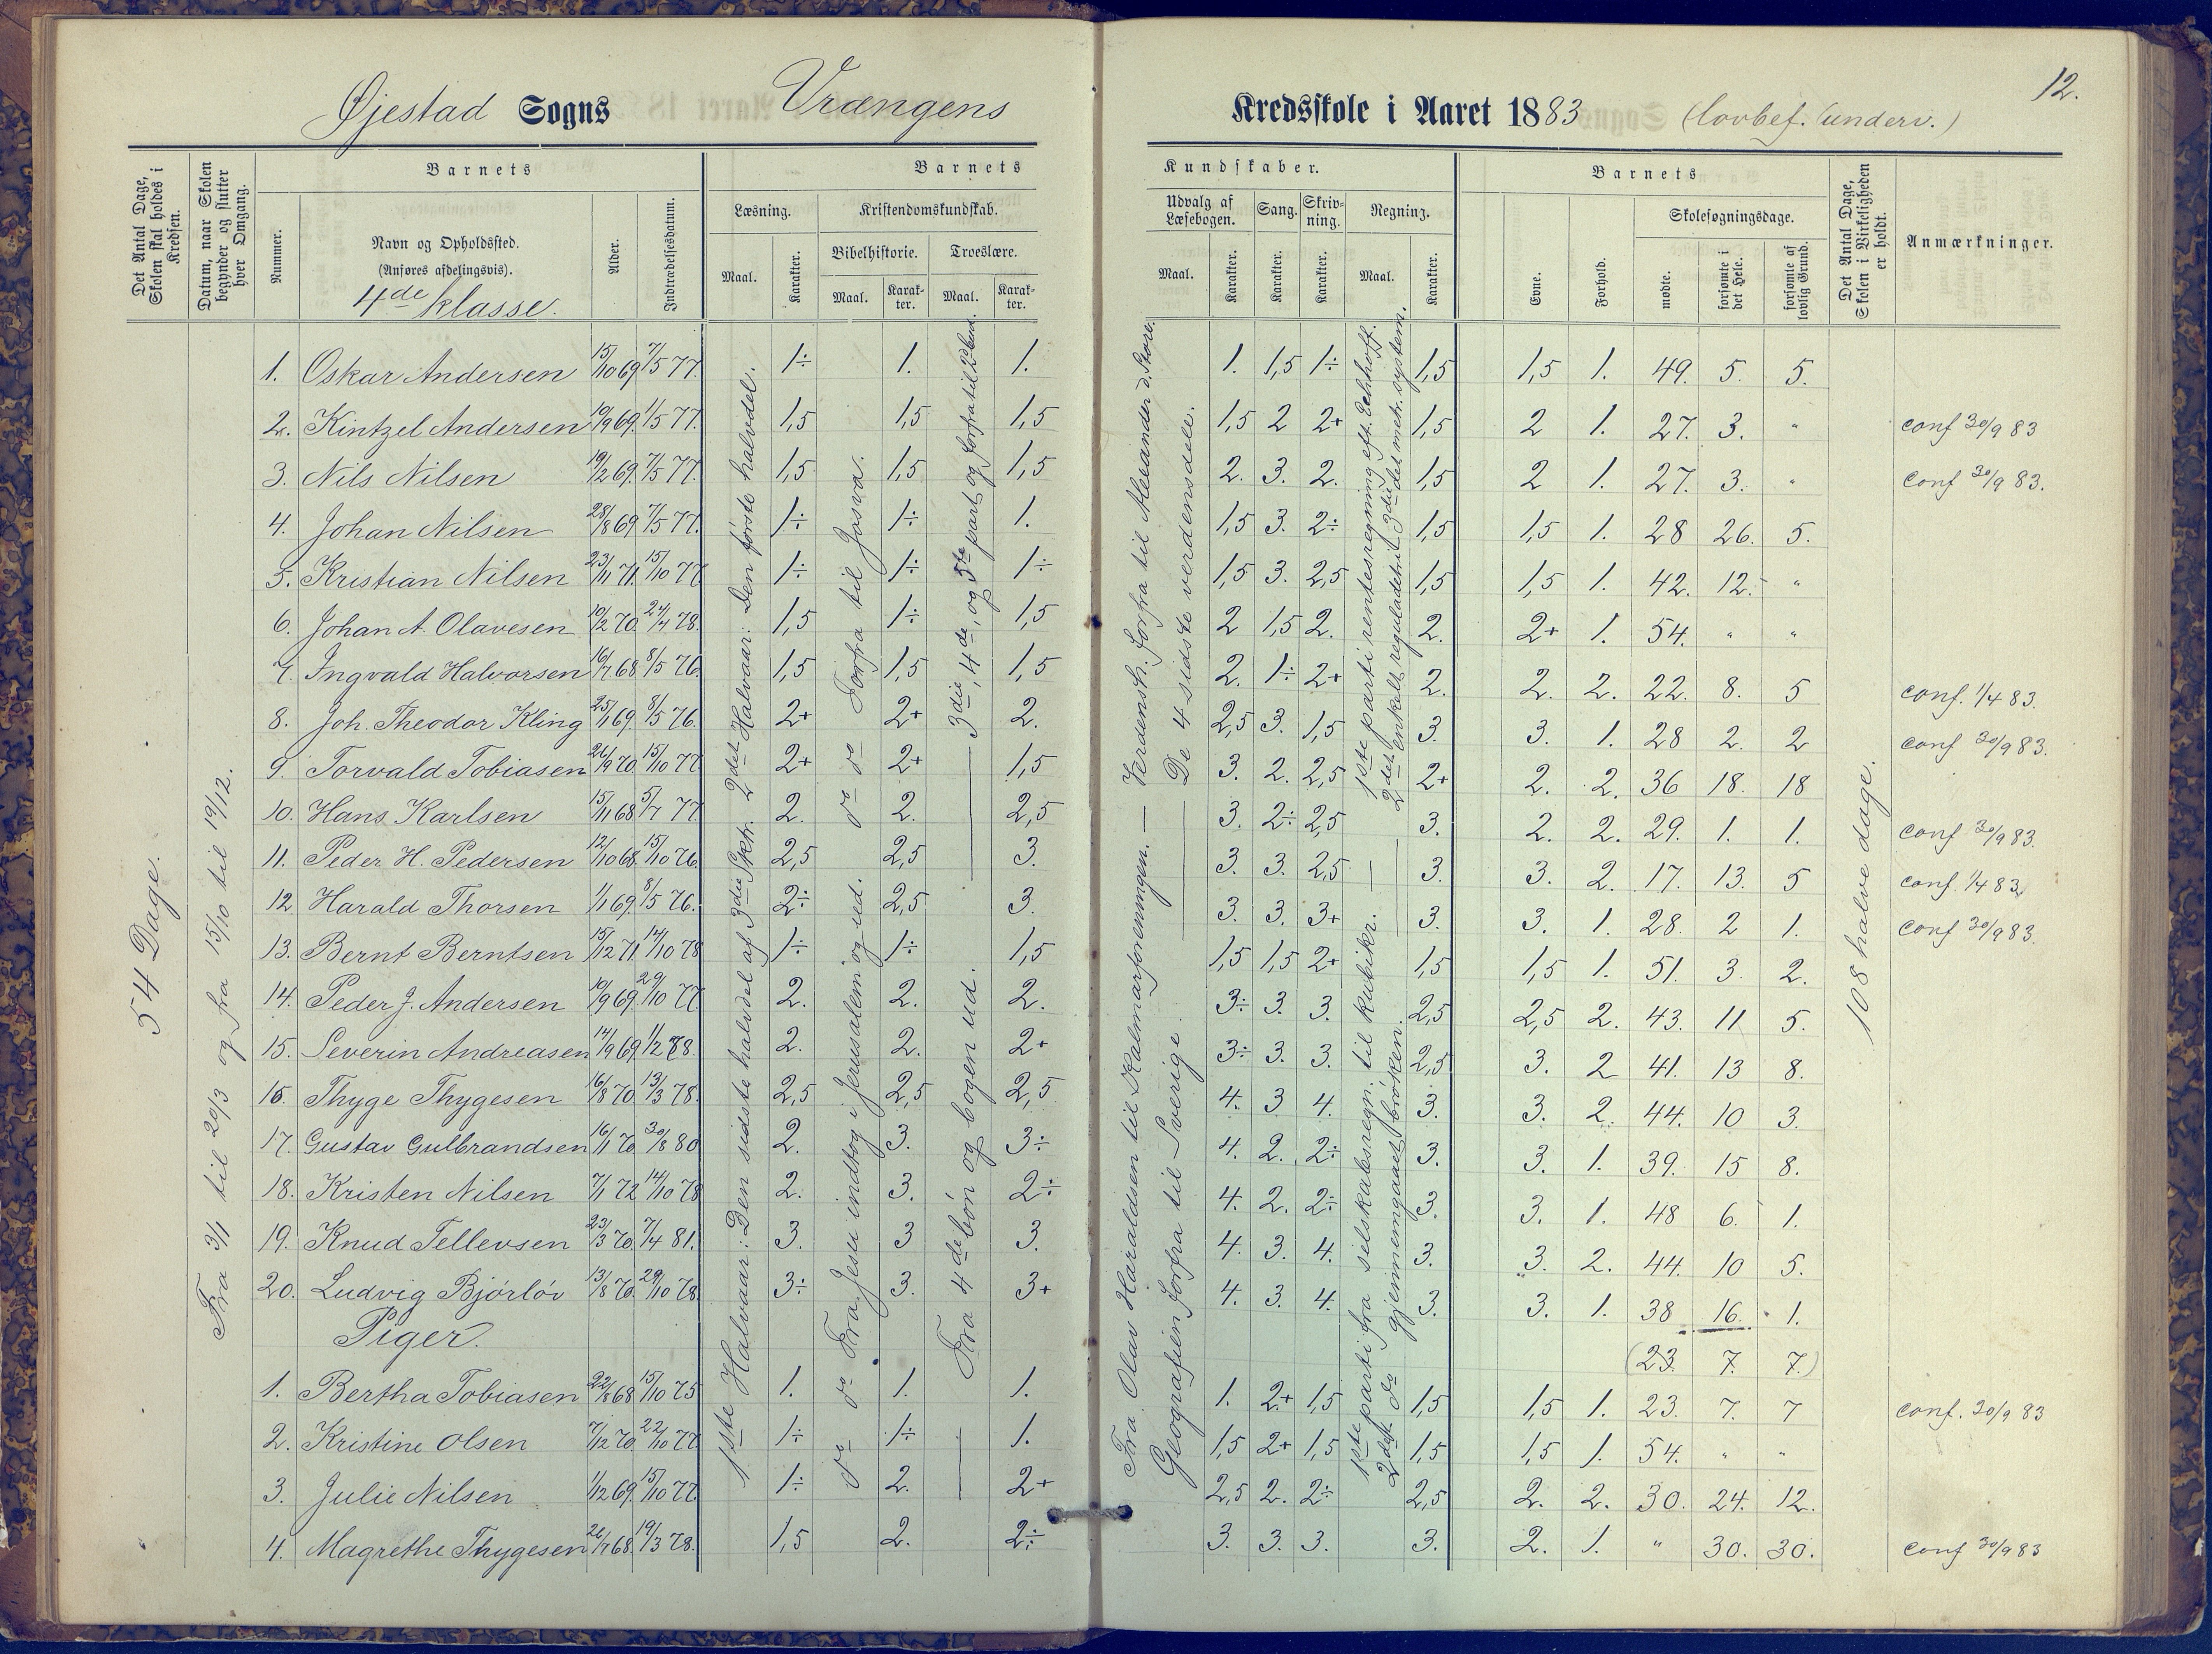 12.
Øjestad Sogns Vrængens Kredsskole i Aaret 1883 (lovbef. underv.)
Det Antal Dage, Skolen skal holdes i Kredsen.
Datum, naar Skolen begynder og slutter hver Omgang.
Barnets
Nummer.
Navn og Opholdssted.
(Anføres afdelingsvis).
4de klasse.
Alder.
Indtrædelsesdatum.
Barnets Kundskaber.
Læsning.
Maal.
Karakter.
Kristendomskundskab.
Bibelhistorie.
Maal.
Karakter.
Troeslære.
Maal.
Karakter.
Udvalg af Læsebogen.
Maal.
Karakter.
Sang.
Karakter.
Skrivning.
Karakter.
Regning.
Maal.
Karakter.
Barnets
Evne.
Forhold.
Skolesøgningsdage.
mødte.
forsømte i det Hele.
forsømte af lovlig Grund.
Det Antal Dage, Skolen i Virkeligheden er holdt.
Anmærkninger.
54 Dage.
Fra 3/1 til 20/3 og fra 15/10 til 19/12.
1ste Halvaar: Den sidste halvdel af 3die Skr. 2det Halvaar: Den første halvdel.
Fra Jesu indtog i Jerusalem og ud. Forfra til Josva.
Fra 4de bøn og bogen ud. 3die, 4de, og 5te part og forfra til
Fra Olav Haraldsen til Kalmarforeningen. — Verdensh. forfra til Alexander d. Store.
Geografien forfra til Sverige. — De 4 sidste verdensdele.
1ste parti fra selskabsregn. til kubikr. — 1ste parti rentesregning eft. Echhoff.
2det do gjennemgaaet brøken. 2det enkelt reguladetri 3die det metr. system.
108 halve dage.
1. Oskar Andersen 15/10 69 7/5 77. 1÷ 1. 1. 1. 1,5 1÷ 1,5 1,5 1. 49. 5. 5.
2. Kintzel Andersen 10/9 69. 1/5 77. 1,5 1,5 1,5 1,5 2 2+ 1,5 2 1. 27. 3. " conf 30/9 83
3. Nils Nilsen 19/2 69. 7/5 77. 1,5 1,5 1,5 2. 3. 2. 1,5 2 1. 27. 3. " conf 30/9 83.
4. Johan Nilsen 28/8 69 7/5 77. 1÷ 1÷ 1. 1,5 3. 2÷ 1,5 1,5 1. 28 26. 5.
5. Kristian Nilsen 23/11 71. 15/10 77 1÷ 1÷ 1÷ 1,5 3. 2,5 1,5 1,5 1. 42. 12. "
6. Johan A. Olavesen 10/2 70. 24/4 78. 1,5 1÷ 1,5 2 1,5 2. 2. 2+ 1. 54. " "
7. Ingvald Halvorsen 16/7 68 8/5 76. 1,5 1,5 1,5 2. 1÷ 2+ 2. 2. 2. 22. 8. 5 conf. 1/4 83.
8. Joh. Theodor Kling 25/1 69. 8/5 76. 2+ 2+ 2. 2,5 3. 1,5 3. 3. 1. 28 2. 2 conf 30/9 83.
9. Torvald Tobiasen 26/9 70. 15/10 77 2+ do 2+ 1,5 3. 2. 2,5 2+ 2. 2. 36 18. 18
10. Hans Karlsen 15/11 68 5/7 77. 2. do 2. 2,5 3. 2÷ 2,5 3. 2. 2. 29. 1. 1. conf 30/9 83.
11. Peder H. Pedersen 12/10 68. 15/10 76. 2,5 2,5 3. 3. 3. 2,5 3. 3. 2. 17. 13. 5 conf. 1/4 83.
12. Harald Thorsen 1/1 69. 8/5 76. 2÷ 2,5 3. 3. 3. 3+ 3. 3. 1. 28. 2 1. conf 30/9 83.
13. Bernt Berntsen 15/12 71. 14/10 78 1÷ 1÷ 1,5 1,5 1,5 2+ 1,5 1,5 1. 51. 3. 2.
14. Peder J. Andersen 10/9 69. 29/10 77 2. 2. 2. 3÷ 3. 3. 2,5 2,5 2. 43. 11 5.
15. Severin Andreasen 14/9 69. 1/2 78. 2. 2. 2+ 3÷ 3. 3. 2,5 3. 2 41. 13 8.
16. Thyge Thygesen 16/8 70. 13/3 78. 2,5 2,5 2,5 4. 3 4. 3. 3. 2. 44. 10 3.
17. Gustav Gulbrandsen 16/1 70. 30/8 80 2. 3. 3÷ 4. 2. 2÷ 3. 3. 1. 39. 15 8.
18. Kristen Nilsen 7/1 72 14/10 78 2. 3. 2÷ 4. 2. 2÷ 3. 3. 1. 48 6. 1.
19. Knud Tellevsen 23/3 70. 7/4 81. 3. 3 3. 4. 3. 4. 3. 3. 2. 44. 10 5.
20. Ludvig Bjørløv 13/8 70. 29/10 78. 3÷ 3. 3+ 4. 3. 4. 3. 3. 1. 38 16. 1.
Piger. (23. 7. 7.)
1. Bertha Tobiasen 22/8 68 15/10 75 1. do 1. 1. 1. 2+ 1,5 1,5 1,5 1. 23. 7. 7 conf. 30/9 83
2. Kristine Olsen 7/12 70. 22/10 77 1÷ do 1÷ 1. 1,5 2+ 1,5 1,5 1,5 1. 54. " "
3. Julie Nilsen 1/12 69. 15/10 77. 1÷ 2. 2+ 2,5 2. 2÷ 2,5 2. 2. 30. 24. 12.
4. Magrethe Thygesen 26/7 68. 19/3 78. 1,5 2. 2÷ 3. 3. 3. 3. 2. 1. " 30. 30. conf 30/9 83